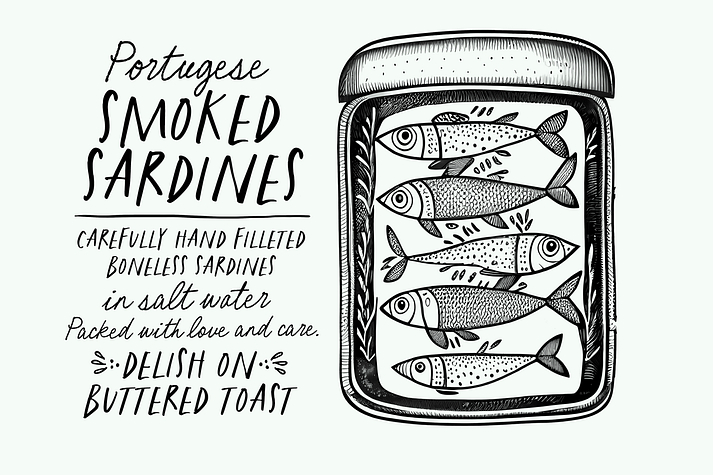 Portugese
SMOKED
SARDINES
CAREFULLY HAND FILLETED
BONELESS SARDINES
in salt water
Packed with love and care.
DELISH ON
BUTTERED TOAST